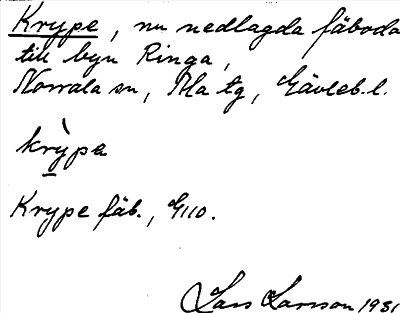 Krype, nu nedlagda fäboda
till byn Ringa,
Norrala sn, Ma tg, Gävleb. l.
krỳpe
Krype fäb., G110.
Lars Larsson 1931